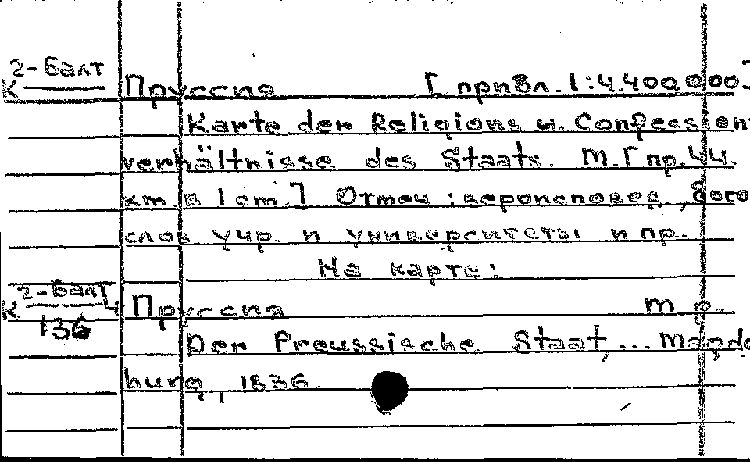 К 2-Балт Пруссия [прибл. 1:4.400.000]
Karte der Religions u. Confessions
verhältnisse des Staats. М. [пр. 44.
км в 1 cm.] Отмеч: вероисповед., бого
слов учр. и университеты и пр.
На карте:
К 2-Балт 4 Пруссия m. p.
136 Der Preussische Staat, ... Magde
burg, 1836